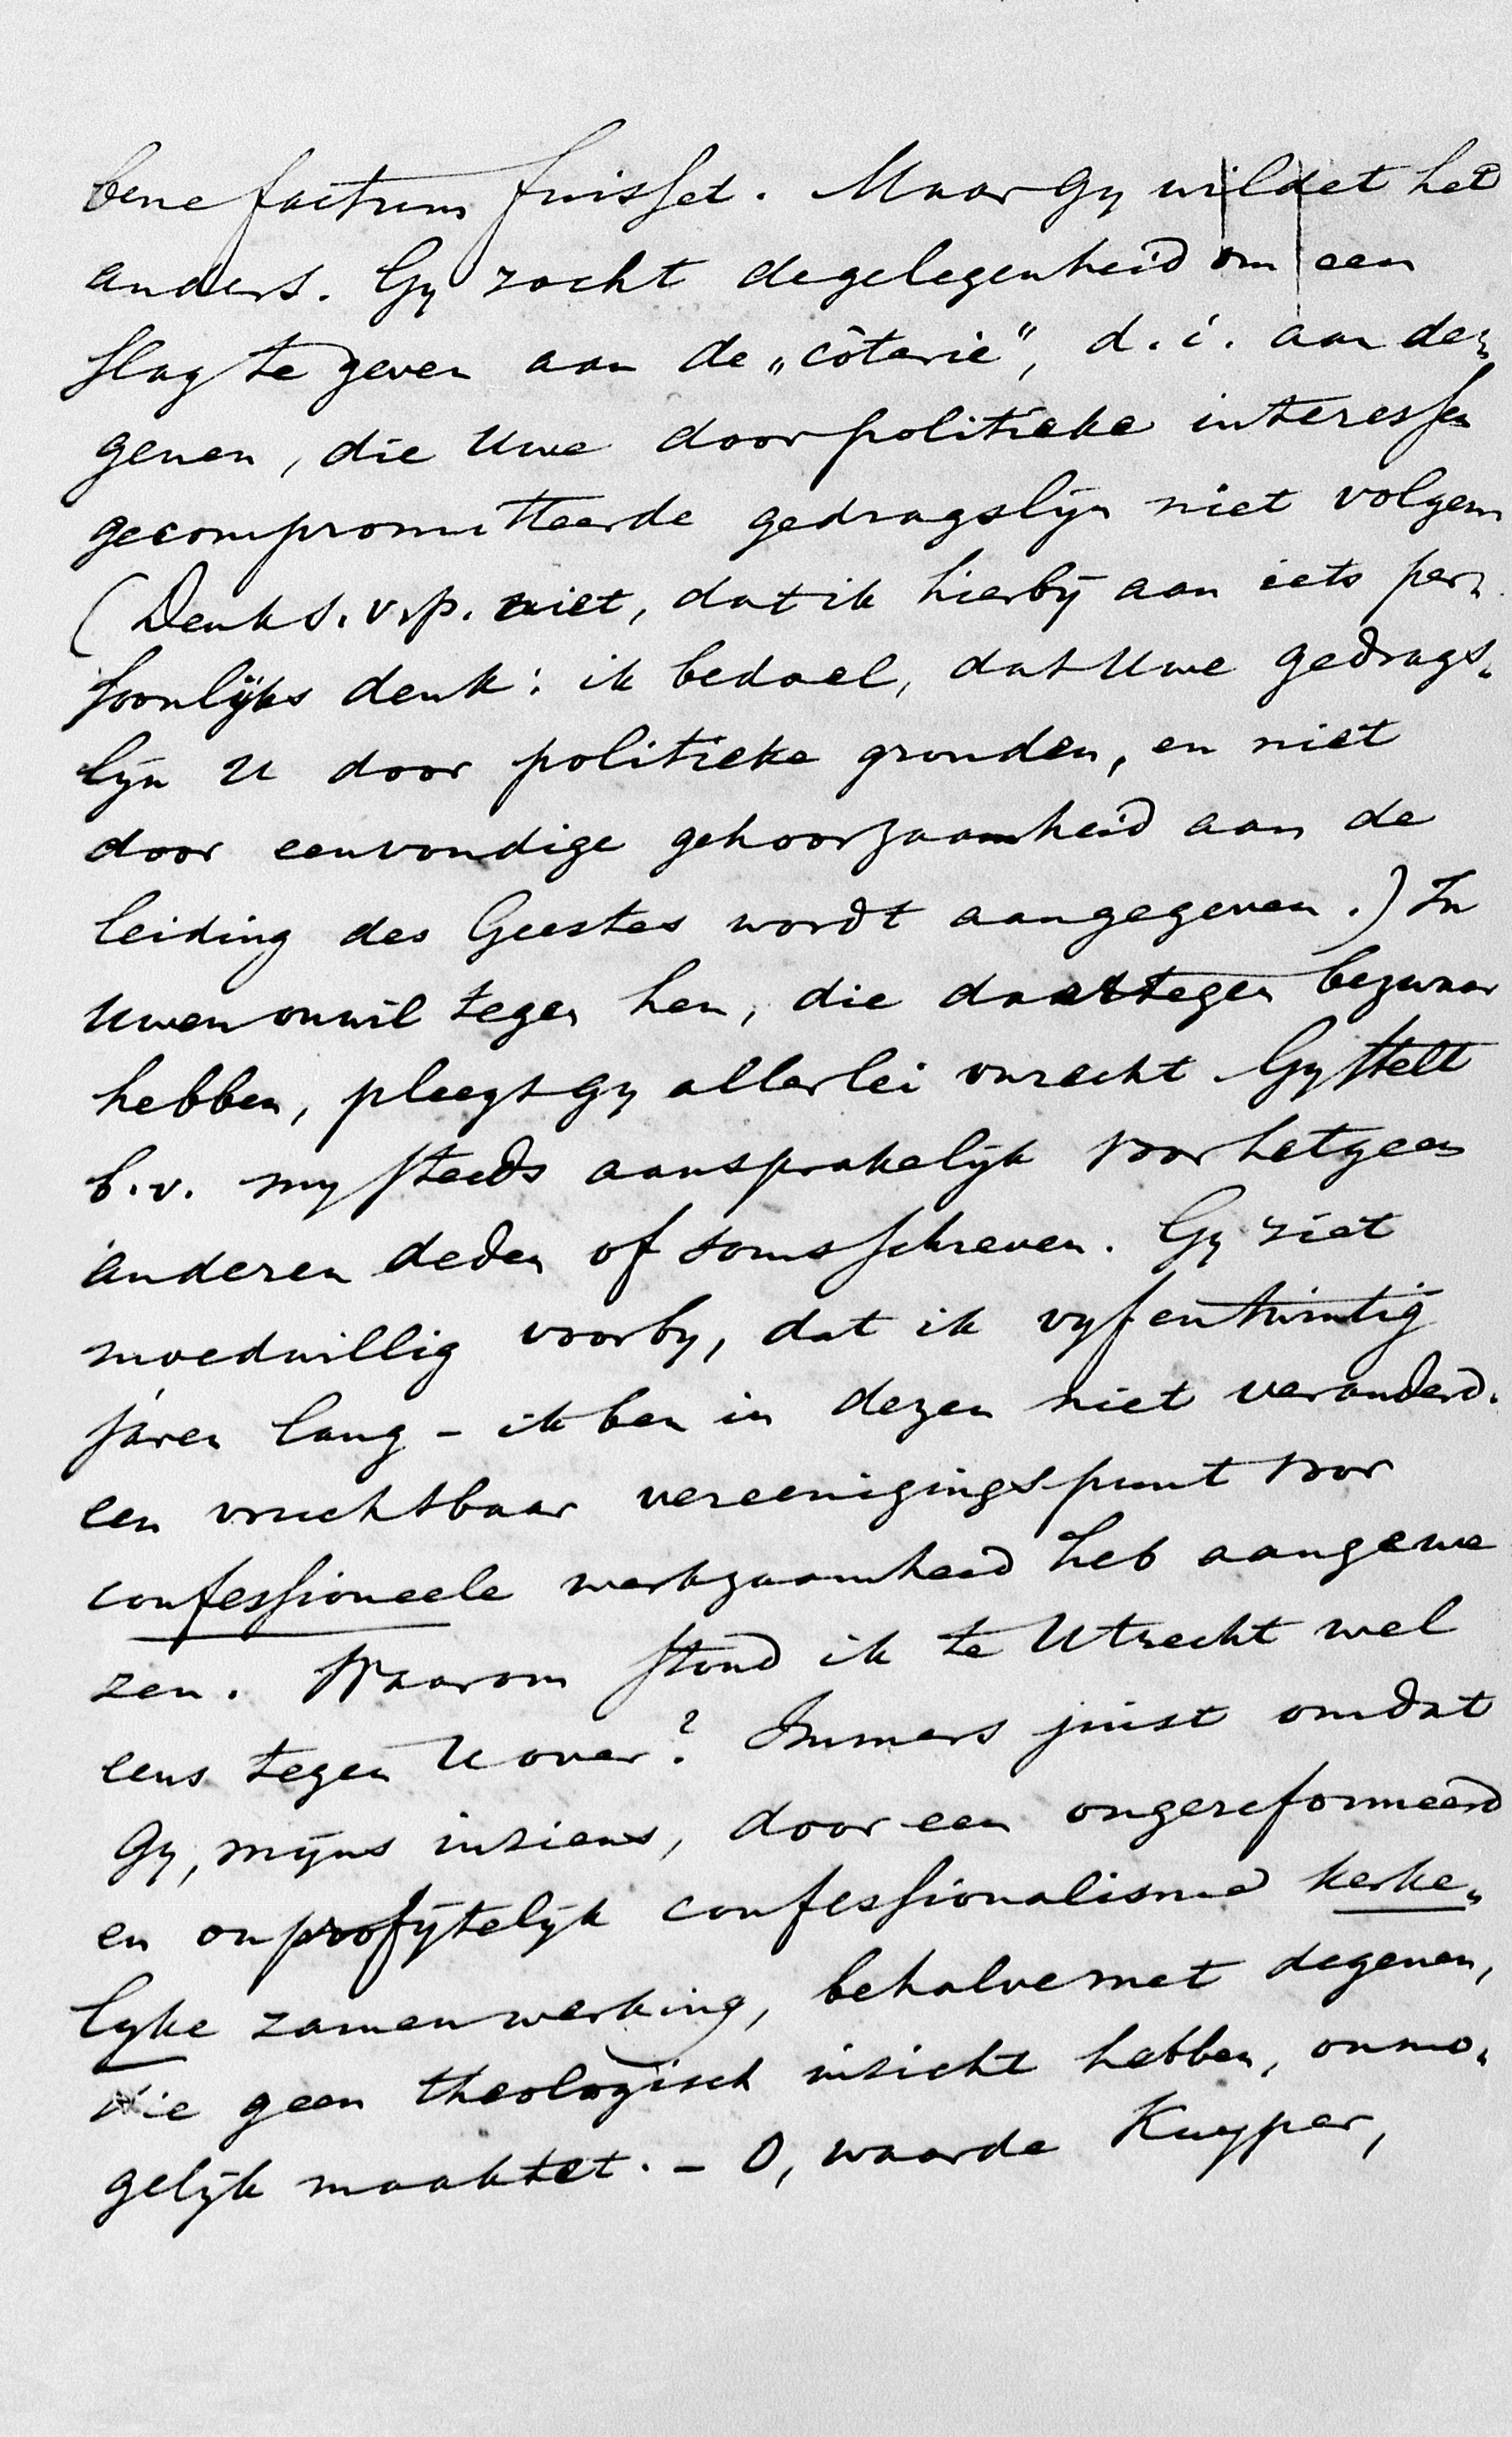 bene factum fuisset. Maar Gy wildet het
anders. Gy zocht de gelegenheid om een
slag te geven aan de „côterie”, d. i. aan de-
genen, die Uwe door politieke interessen
gecompromitteerde gedragslijn niet volgen
(Denk s. v. p. niet, dat ik hierbij aan iets per-
soonlijks denk: ik bedoel, dat Uwe gedrags-
lijn U door politieke gronden, en niet
door eenvoudige gehoorzaamheid aan de
leiding des Geestes wordt aangegeven.) In
Uwen onwil tegen hen, die daartegen bezwaar
hebben, pleegt gy allerlei onrecht. Gy stelt
b. v. my steeds aansprakelijk voor hetgeen
anderen deden of soms schreven. Gy ziet
moedwillig voorby, dat ik vyfentwintig
jaren lang - ik ben in dezen niet veranderd -
een vruchtbaar vereenigingspunt voor
confessioneele werkzaamheid heb aangewe
zen. Waarom stond ik te Utrecht wel
eens tegen U over? Immers juist omdat
Gy, mijns inziens, door een ongereformeerd
en onprofijtelijk confessionalisme kerke-
lyke zamenwerking, behalve met degenen,
die geen theologisch inzicht hebben, onmo-
gelijk maaktet. - O, waarde Kuyper,